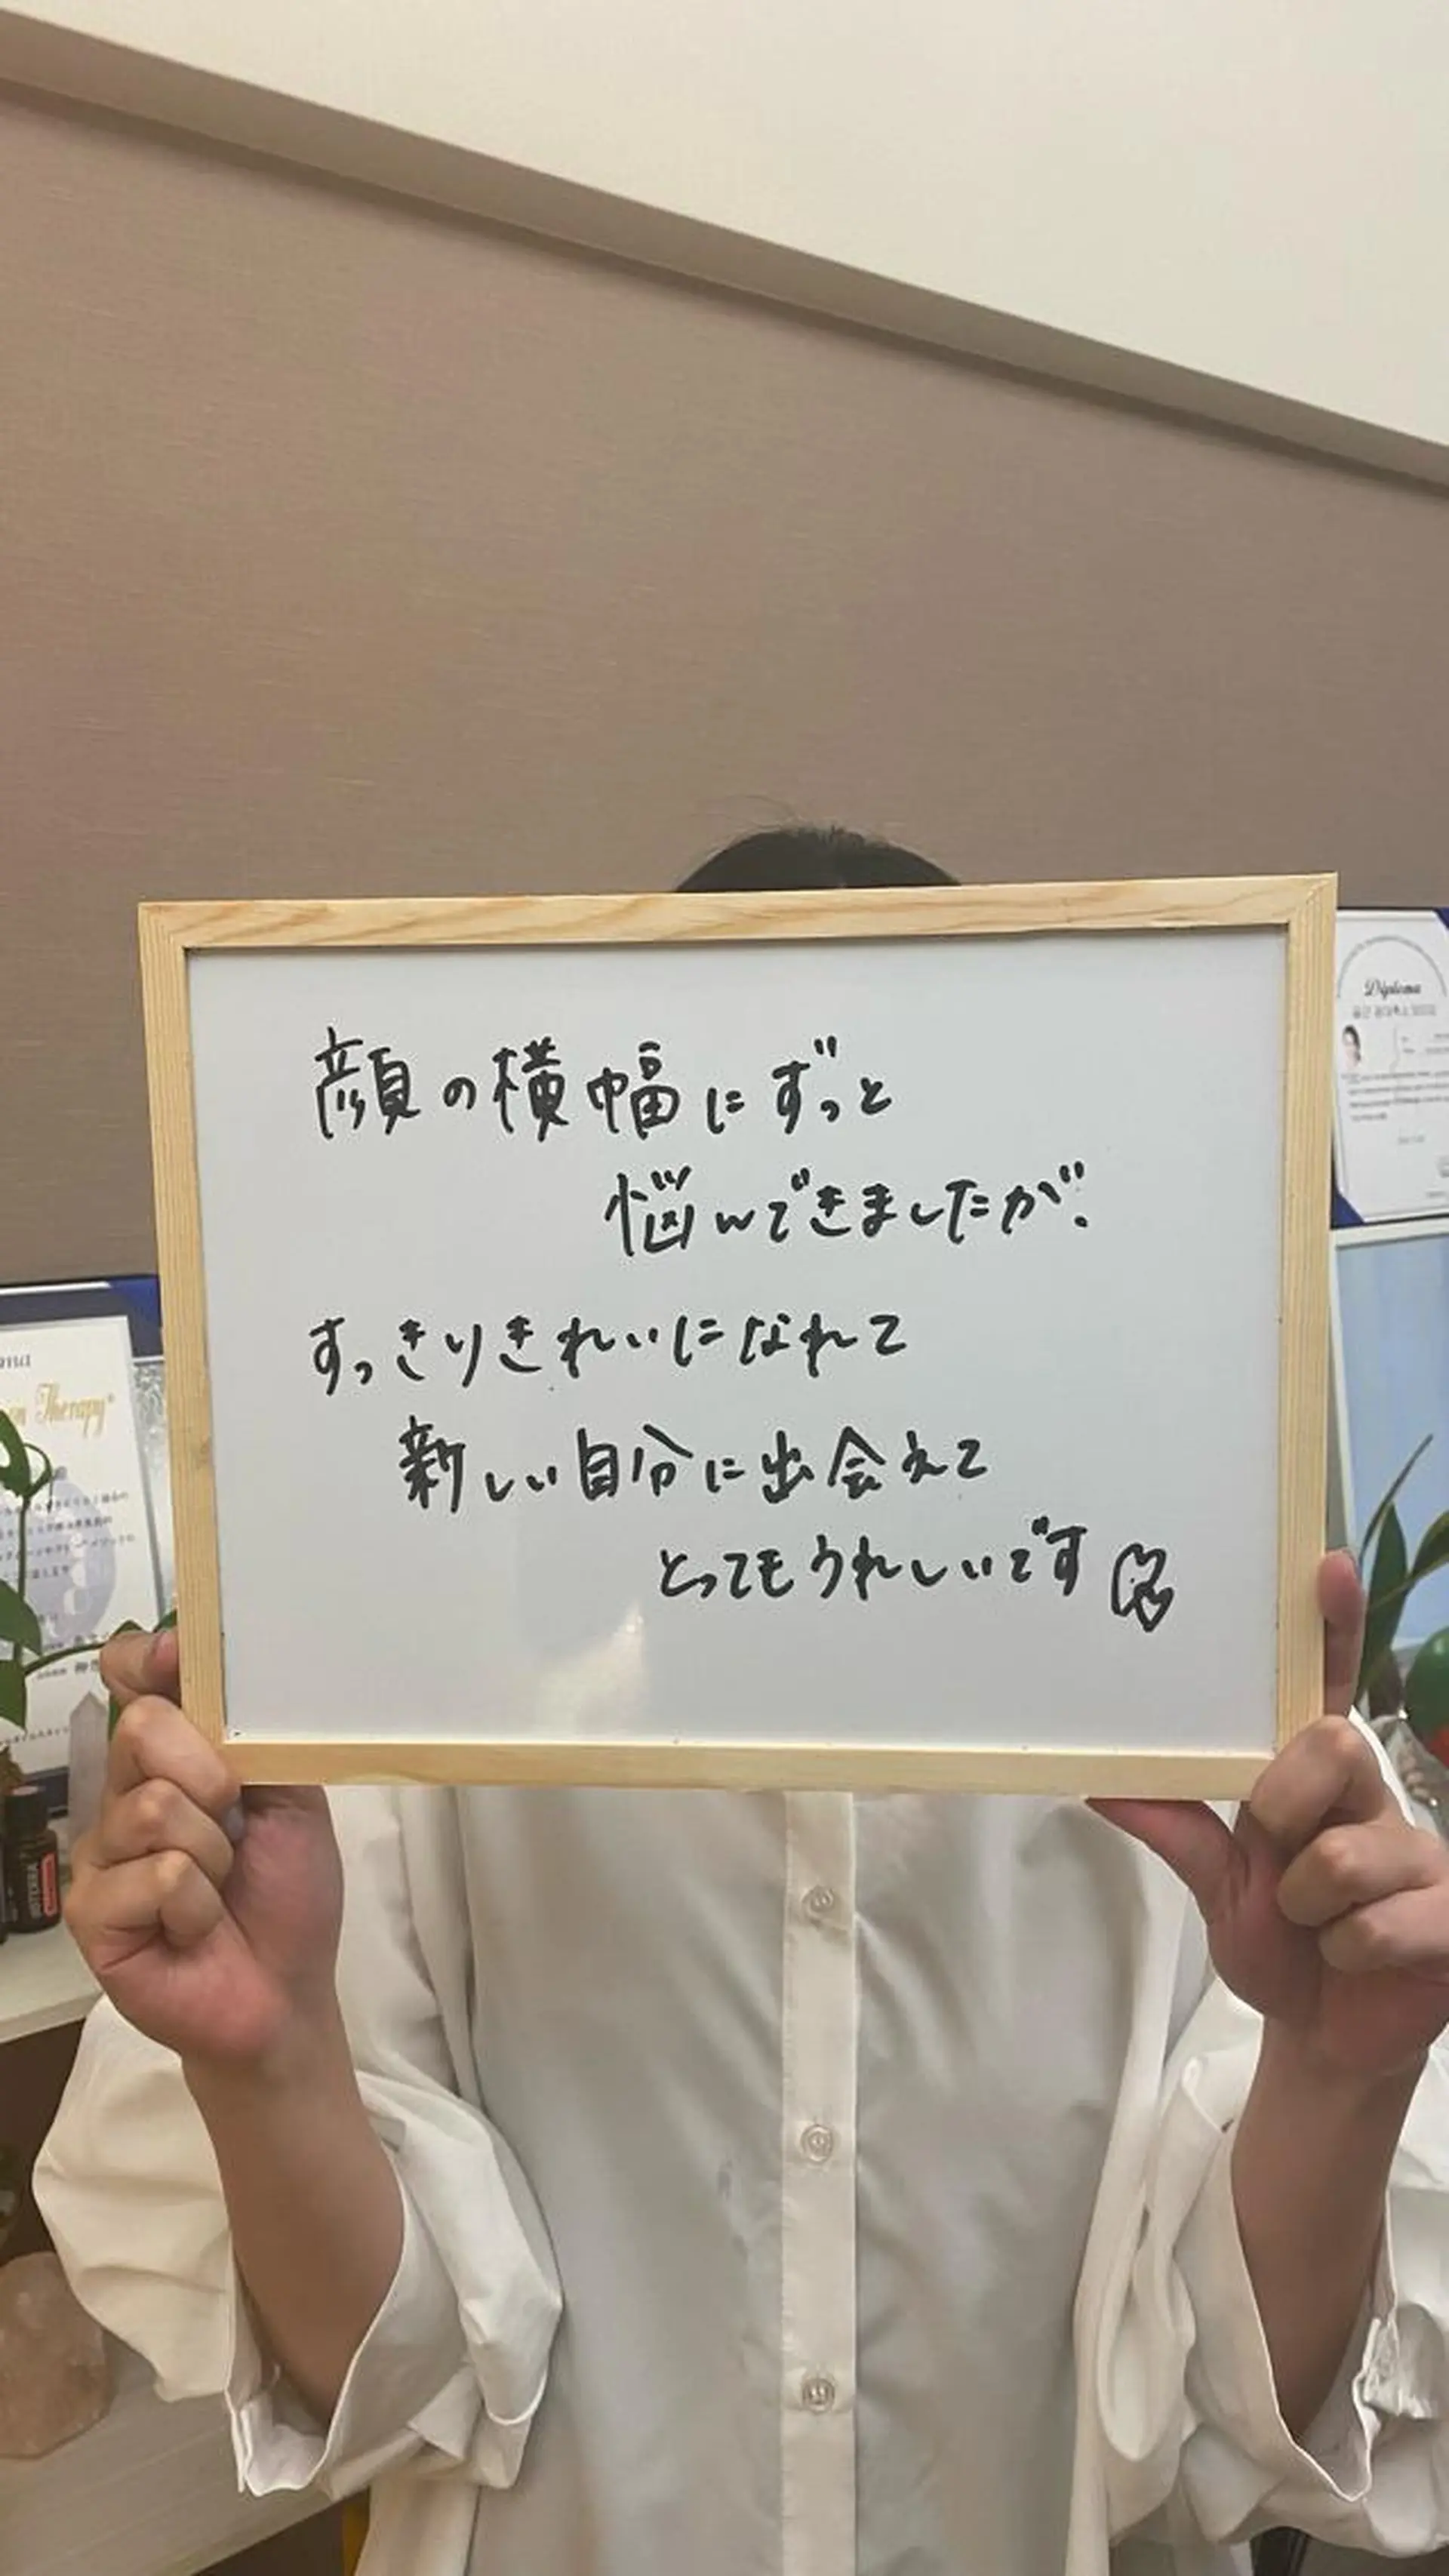 顔の横幅にずっと
悩んできましたが、
すっきりきれいになれて
新しい自分に出会えて
とってもうれしいです
Diploma
Therapy